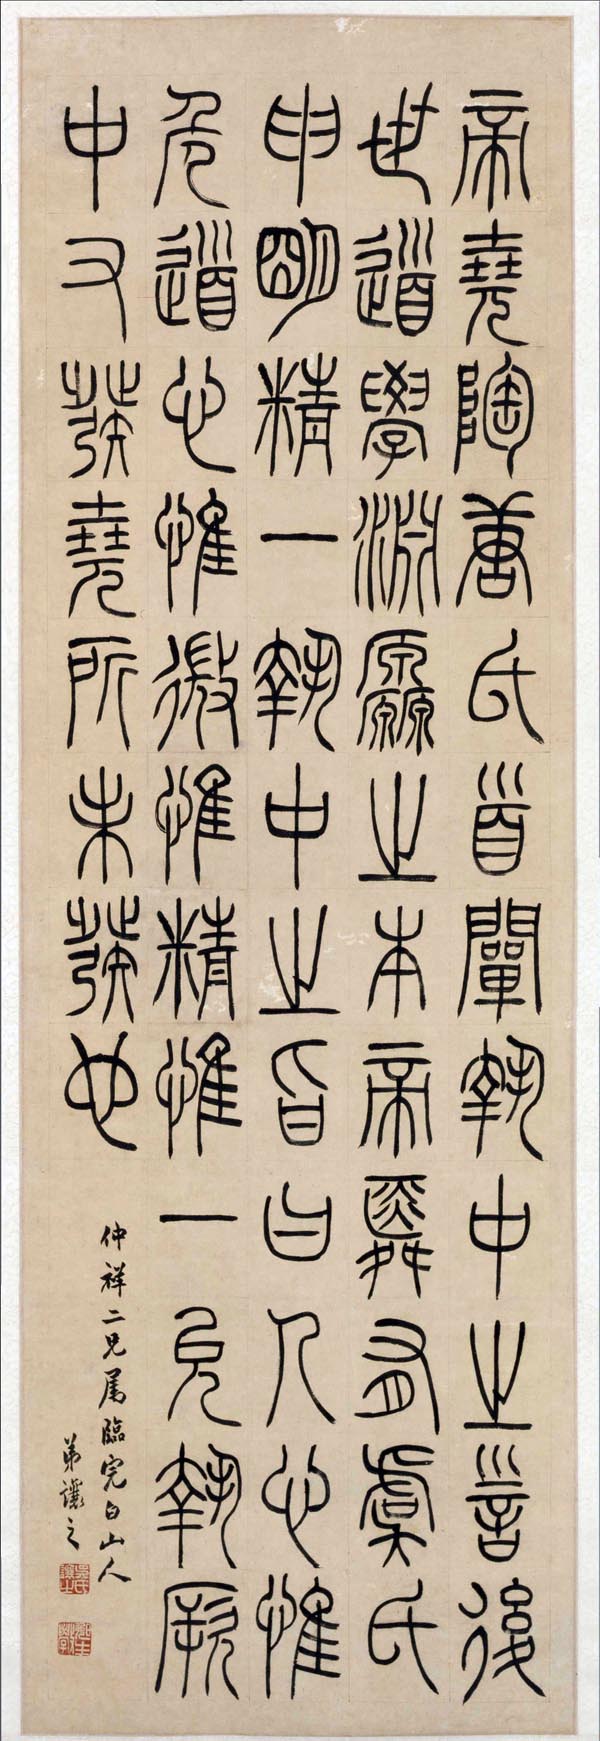 帝堯陶唐氏首闡執中之言後
世道學淵源之本帝舜有虞氏
申明精一執中之旨曰人心惟
危道心惟微惟精惟一允執厥
中又發堯所未發也
仲祥二兄属臨完白山人
弟讓之